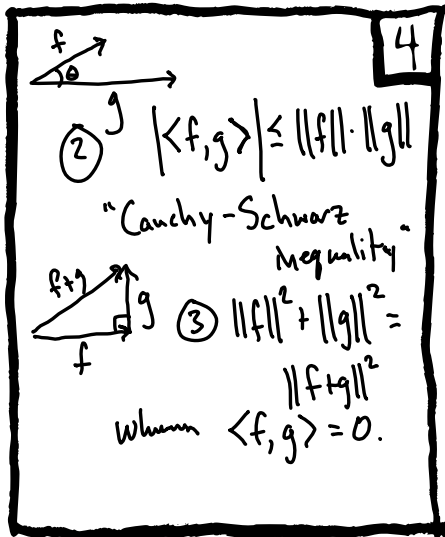 4
f
θ
g
② |<f,g>| ≤ ||f||·||g||
"Cauchy-Schwarz
inequality"
f+g
g
f
③ ||f||² + ||g||² =
||f+g||²
<f,g> = 0.